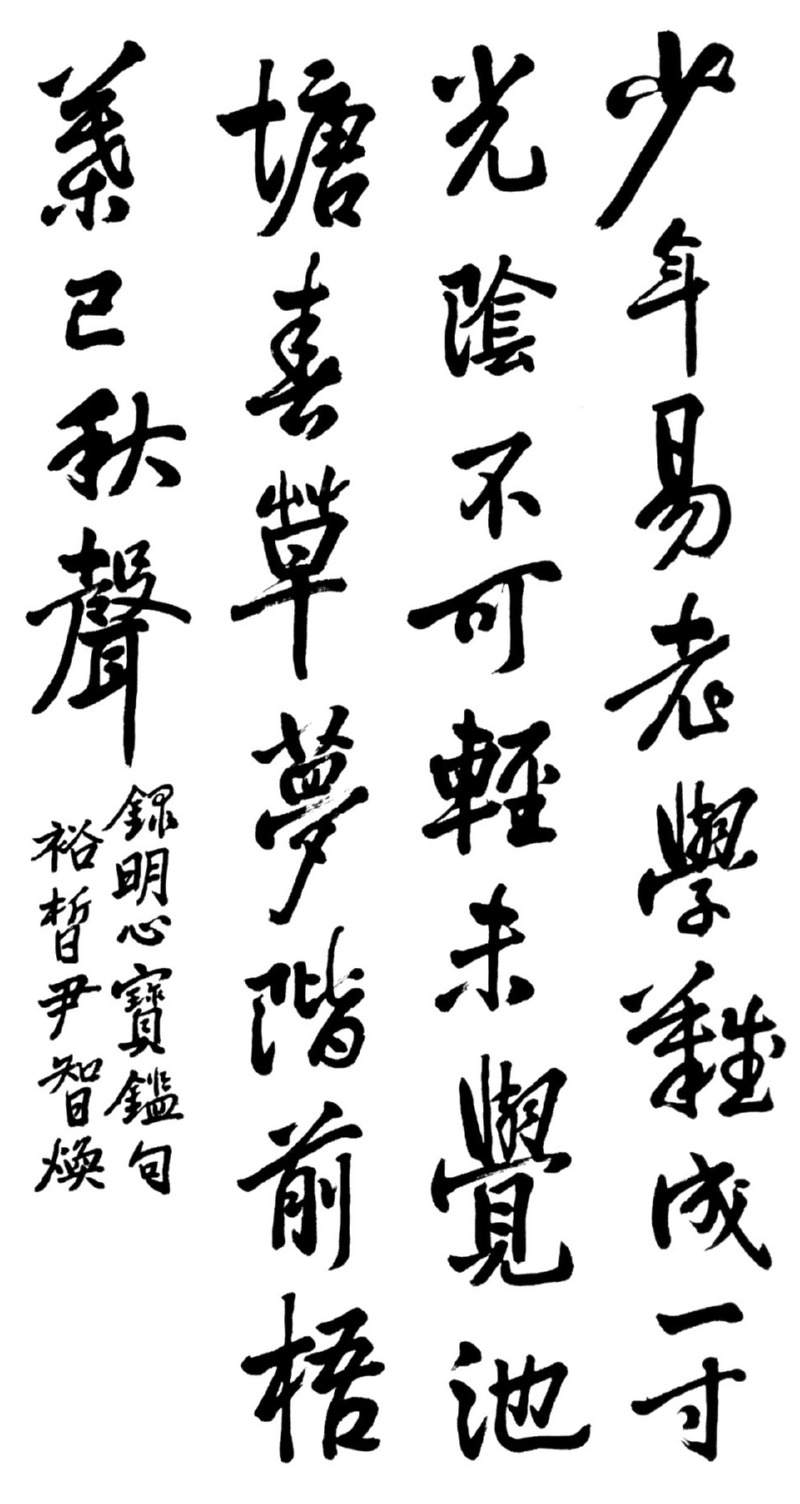 少年易老學難成一寸
光陰不可輕未覺池
塘春草夢階前梧
葉已秋聲
錄明心寶鑑句
裕晳尹智煥